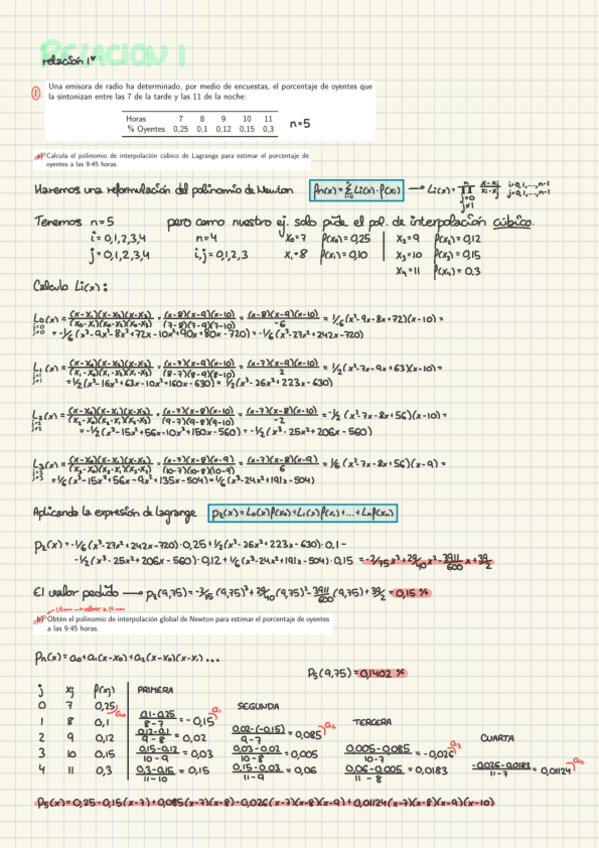 RELACION 1
relación 1
1 Una emisora de radio ha determinado, por medio de encuestas, el porcentaje de oyentes que
la sintonizan entre las 7 de la tarde y las 11 de la noche:
Horas 7 8 9 10 11
% Oyentes 0,25 0,1 0,12 0,15 0,3 n=5
a) Calcula el polinomio de interpolación cúbico de Lagrange para estimar el porcentaje de
oyentes a las 9:45 horas.
Haremos una reformulación del polinomio de Newton
Tenemos n=5 pero como nuestro ej. solo pide el pol. de interpolación cúbico.
i=0,1,2,3,4 n=4 x₀=7 f(x₀)=0,25 x₂=9 f(x₂)=0,12
j=0,1,2,3,4 i,j=0,1,2,3 x₁=8 f(x₁)=0,10 x₃=10 f(x₃)=0,15
x₄=11 f(x₄)=0,3
Calculo Li(x):
L₀(x)=(x-x₁)(x-x₂)(x-x₃)/(x₀-x₁)(x₀-x₂)(x₀-x₃)=(x-8)(x-9)(x-10)/(7-8)(7-9)(7-10)=(x-8)(x-9)(x-10)/-6=
=-1/6(x³-27x²+242x-720)
L₁(x)=(x-x₀)(x-x₂)(x-x₃)/(x₁-x₀)(x₁-x₂)(x₁-x₃)=(x-7)(x-9)(x-10)/(8-7)(8-9)(8-10)=(x-7)(x-9)(x-10)/2=
=1/2(x³-16x²+63x-10x²+160x-630)=1/2(x³-26x²+223x-630)
L₂(x)=(x-x₀)(x-x₁)(x-x₃)/(x₂-x₀)(x₂-x₁)(x₂-x₃)=(x-7)(x-8)(x-10)/(9-7)(9-8)(9-10)=(x-7)(x-8)(x-10)/-2=-1/2(x²-7x-8x+56)(x-10)=
=-1/2(x³-15x²+56x-10x²+150x-560)=-1/2(x³-25x²+206x-560)
L₃(x)=(x-x₀)(x-x₁)(x-x₂)/(x₃-x₀)(x₃-x₁)(x₃-x₂)=(x-7)(x-8)(x-9)/(10-7)(10-8)(10-9)=(x-7)(x-8)(x-9)/6=1/6(x²-7x-8x+56)(x-9)=
=1/6(x³-15x²+56x-9x²+135x-504)=1/6(x³-24x²+191x-504)
Aplicando la expresión de lagrange
-1/6(x³-27x²+242x-720)·0,25+1/2(x³-26x²+223x-630)·0,1-
-1/2(x³-25x²+206x-560)·0,12+1/6(x³-24x²+191x-504)·0,15=
El valor pedido → 0,15 %
b) Obtén el polinomio de interpolación global de Newton para estimar el porcentaje de oyentes
a las 9:45 horas.
Pn(x)=a₀+a₁(x-x₀)+a₂(x-x₀)(x-x₁)...
P₅(9,75)=0,1402 %
j xj f(xj) PRIMERA SEGUNDA TERCERA CUARTA
0 7 0,25 a₀
1 8 0,1 0,1-0,25/8-7=-0,15 a₁
2 9 0,12 0,12-0,1/9-8=0,02 0,02-(-0,15)/9-7=0,085 a₂
3 10 0,15 0,15-0,12/10-9=0,03 0,03-0,02/10-8=0,005 0,005-0,085/10-7=-0,026 a₃
4 11 0,3 0,3-0,15/11-10=0,15 0,15-0,03/11-9=0,06 0,06-0,005/11-8=0,0183 -0,026-0,0183/11-7=0,01124 a₄
P₅(x)=0,25-0,15(x-7)+0,085(x-7)(x-8)-0,026(x-7)(x-8)(x-9)+0,01124(x-7)(x-8)(x-9)(x-10)